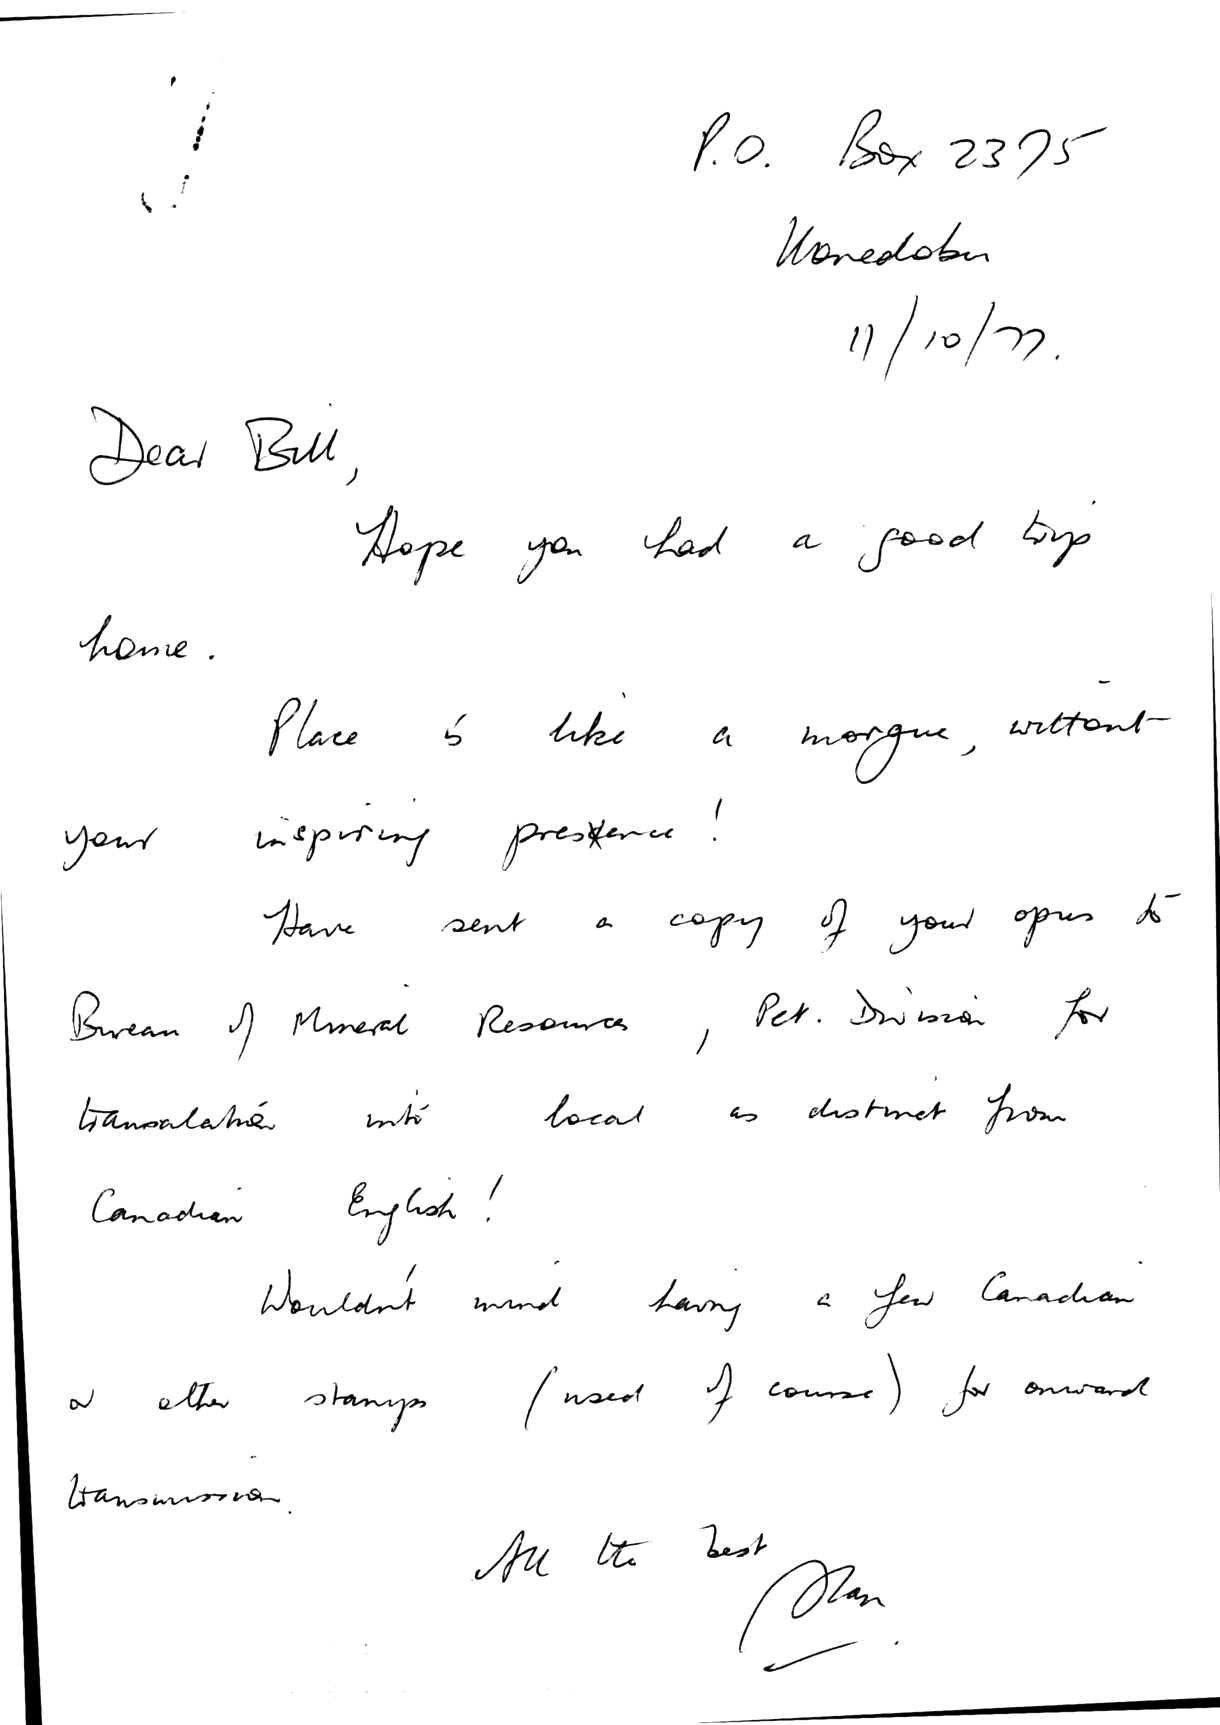 P.O. Box 2375
Konedobu
11/10/77.
Dear Bill,
Hope you had a good trip
home.
Place is like a morgue, without
your inspiring presence!
Have sent a copy of your opus to
Bureau of Mineral Resources, Pet. Division for
transalation into local as distinct from
Canadian English!
Wouldn't mind having a few Canadian
or other stamps (used of course) for onward
transmission.
All the best